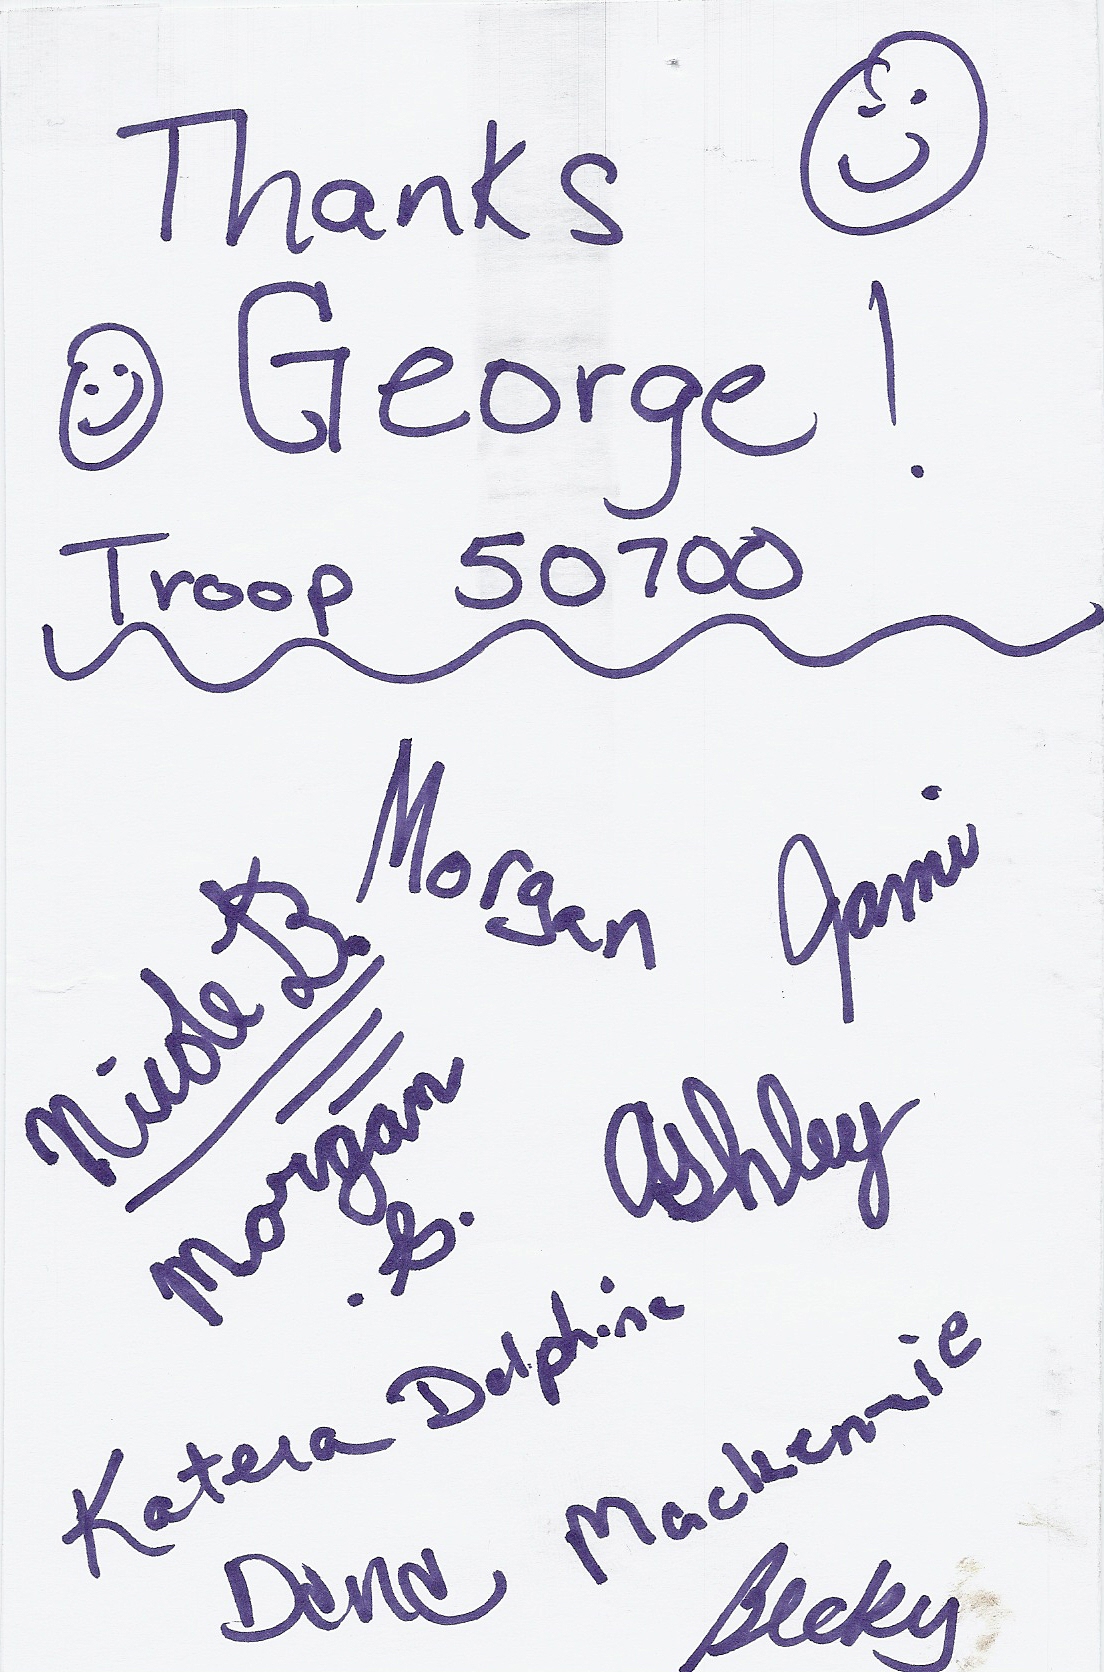 Thanks
George!
Troop 50700
Morgan
Jami
Nicole B.
Morgan
.B.
Ashley
Katera Dalphine
Mackenzie
Becky